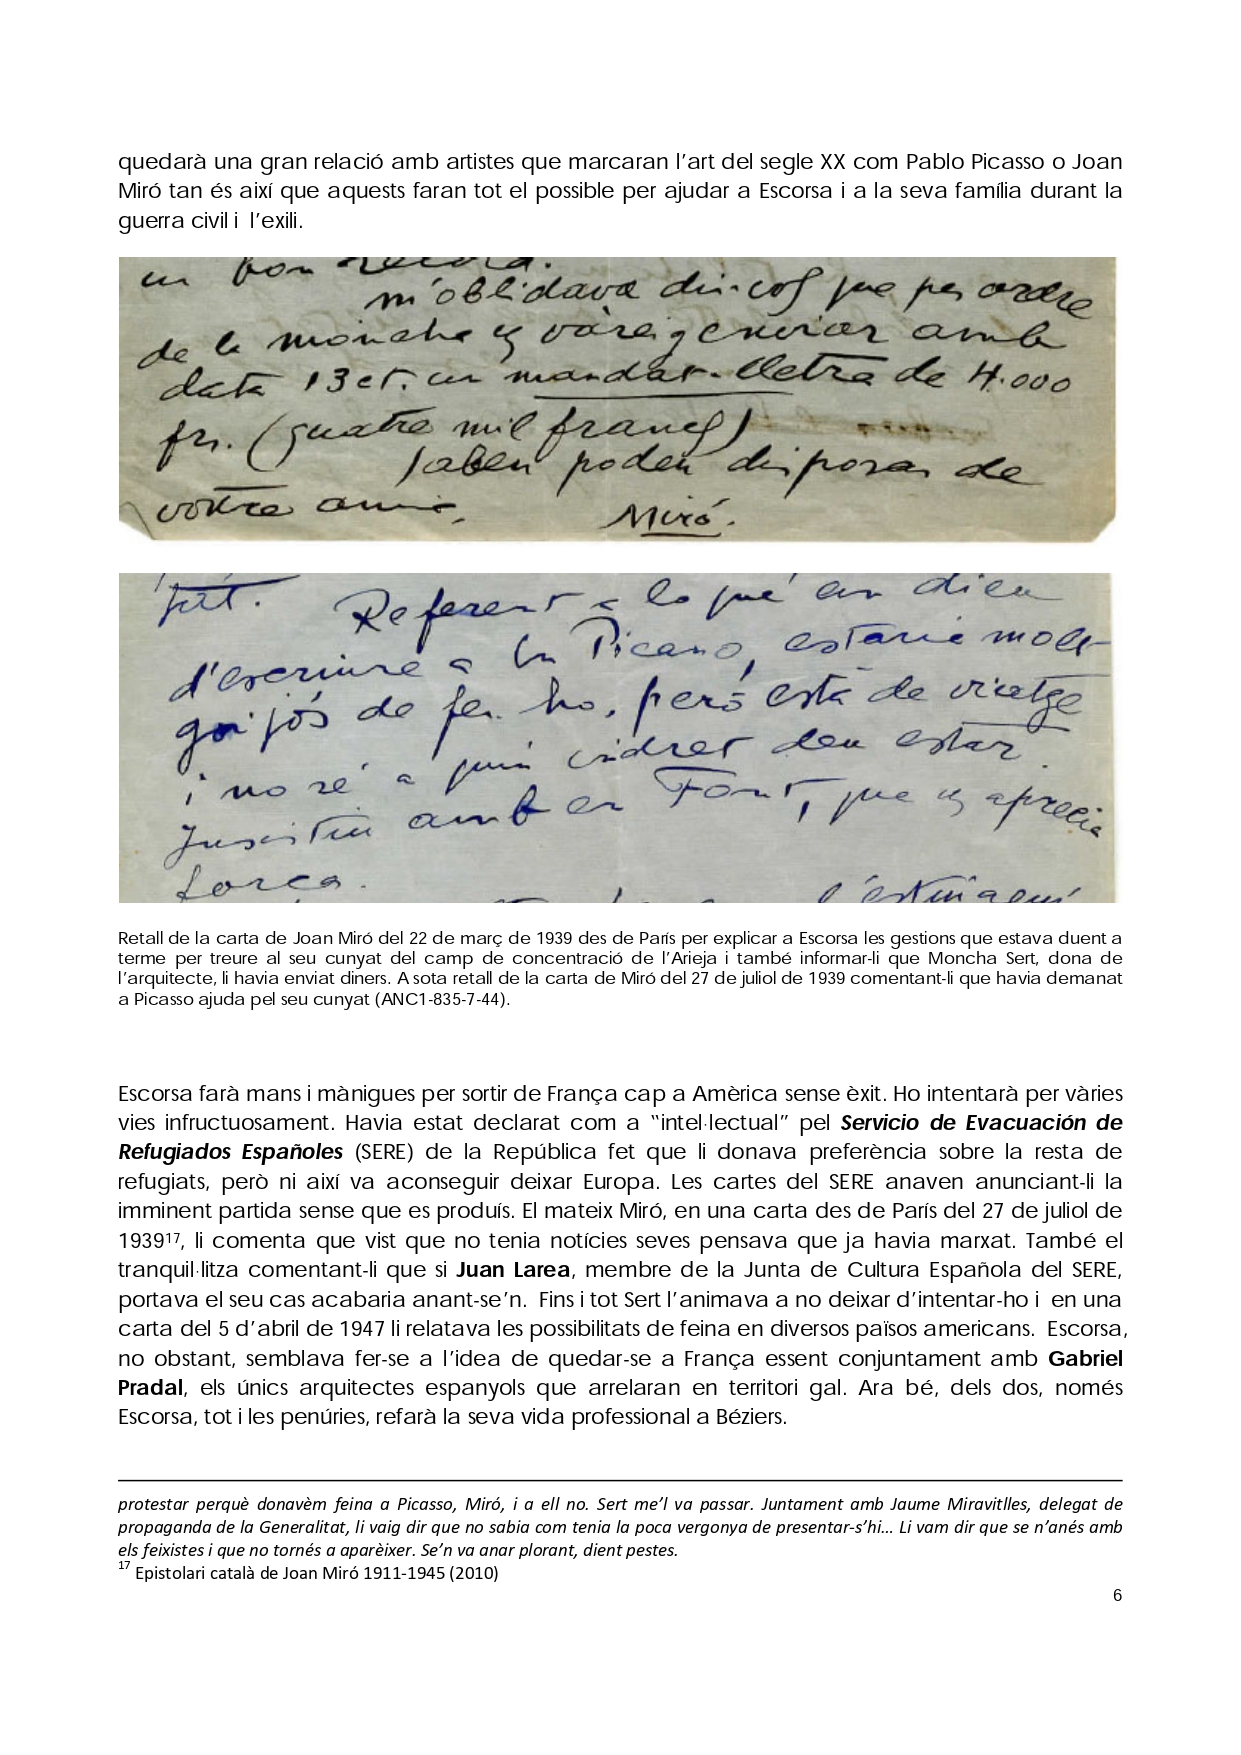 quedarà una gran relació amb artistes que marcaran l’art del segle XX com Pablo Picasso o Joan
Miró tan és així que aquests faran tot el possible per ajudar a Escorsa i a la seva família durant la
guerra civil i l’exili.
un bon record.
m'oblidava dir-vos que per ordre
de la moncha us vàreig enviar amb
data 13 ct. un mandat-lletra de 4.000
frs. (quatre mil francs)
Saben poden disposar de
vostre amic,
Miró.
Referent a lo què em dieu
d'escriure a En Picasso, estaria molt
goijós de fer-ho, però està de viatge
i no sé a quin indret deu estar.
Insistiu amb en Font, que us aprecia
força.
Retall de la carta de Joan Miró del 22 de març de 1939 des de París per explicar a Escorsa les gestions que estava duent a
terme per treure al seu cunyat del camp de concentració de l’Arieja i també informar-li que Moncha Sert, dona de
l’arquitecte, li havia enviat diners. A sota retall de la carta de Miró del 27 de juliol de 1939 comentant-li que havia demanat
a Picasso ajuda pel seu cunyat (ANC1-835-7-44).
Escorsa farà mans i mànigues per sortir de França cap a Amèrica sense èxit. Ho intentarà per vàries
vies infructuosament. Havia estat declarat com a “intel·lectual” pel Servicio de Evacuación de
Refugiados Españoles (SERE) de la República fet que li donava preferència sobre la resta de
refugiats, però ni així va aconseguir deixar Europa. Les cartes del SERE anaven anunciant-li la
imminent partida sense que es produís. El mateix Miró, en una carta des de París del 27 de juliol de
1939¹⁷, li comenta que vist que no tenia notícies seves pensava que ja havia marxat. També el
tranquil·litza comentant-li que si Juan Larea, membre de la Junta de Cultura Española del SERE,
portava el seu cas acabaria anant-se’n. Fins i tot Sert l’animava a no deixar d’intentar-ho i en una
carta del 5 d’abril de 1947 li relatava les possibilitats de feina en diversos països americans. Escorsa,
no obstant, semblava fer-se a l’idea de quedar-se a França essent conjuntament amb Gabriel
Pradal, els únics arquitectes espanyols que arrelaran en territori gal. Ara bé, dels dos, només
Escorsa, tot i les penúries, refarà la seva vida professional a Béziers.
protestar perquè donavèm feina a Picasso, Miró, i a ell no. Sert me’l va passar. Juntament amb Jaume Miravitlles, delegat de
propaganda de la Generalitat, li vaig dir que no sabia com tenia la poca vergonya de presentar-s’hi… Li vam dir que se n’anés amb
els feixistes i que no tornés a aparèixer. Se’n va anar plorant, dient pestes.
¹⁷ Epistolari català de Joan Miró 1911-1945 (2010)
6